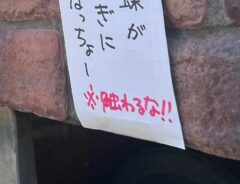 珠が
ぎに
はっちょー
※触わるな!!